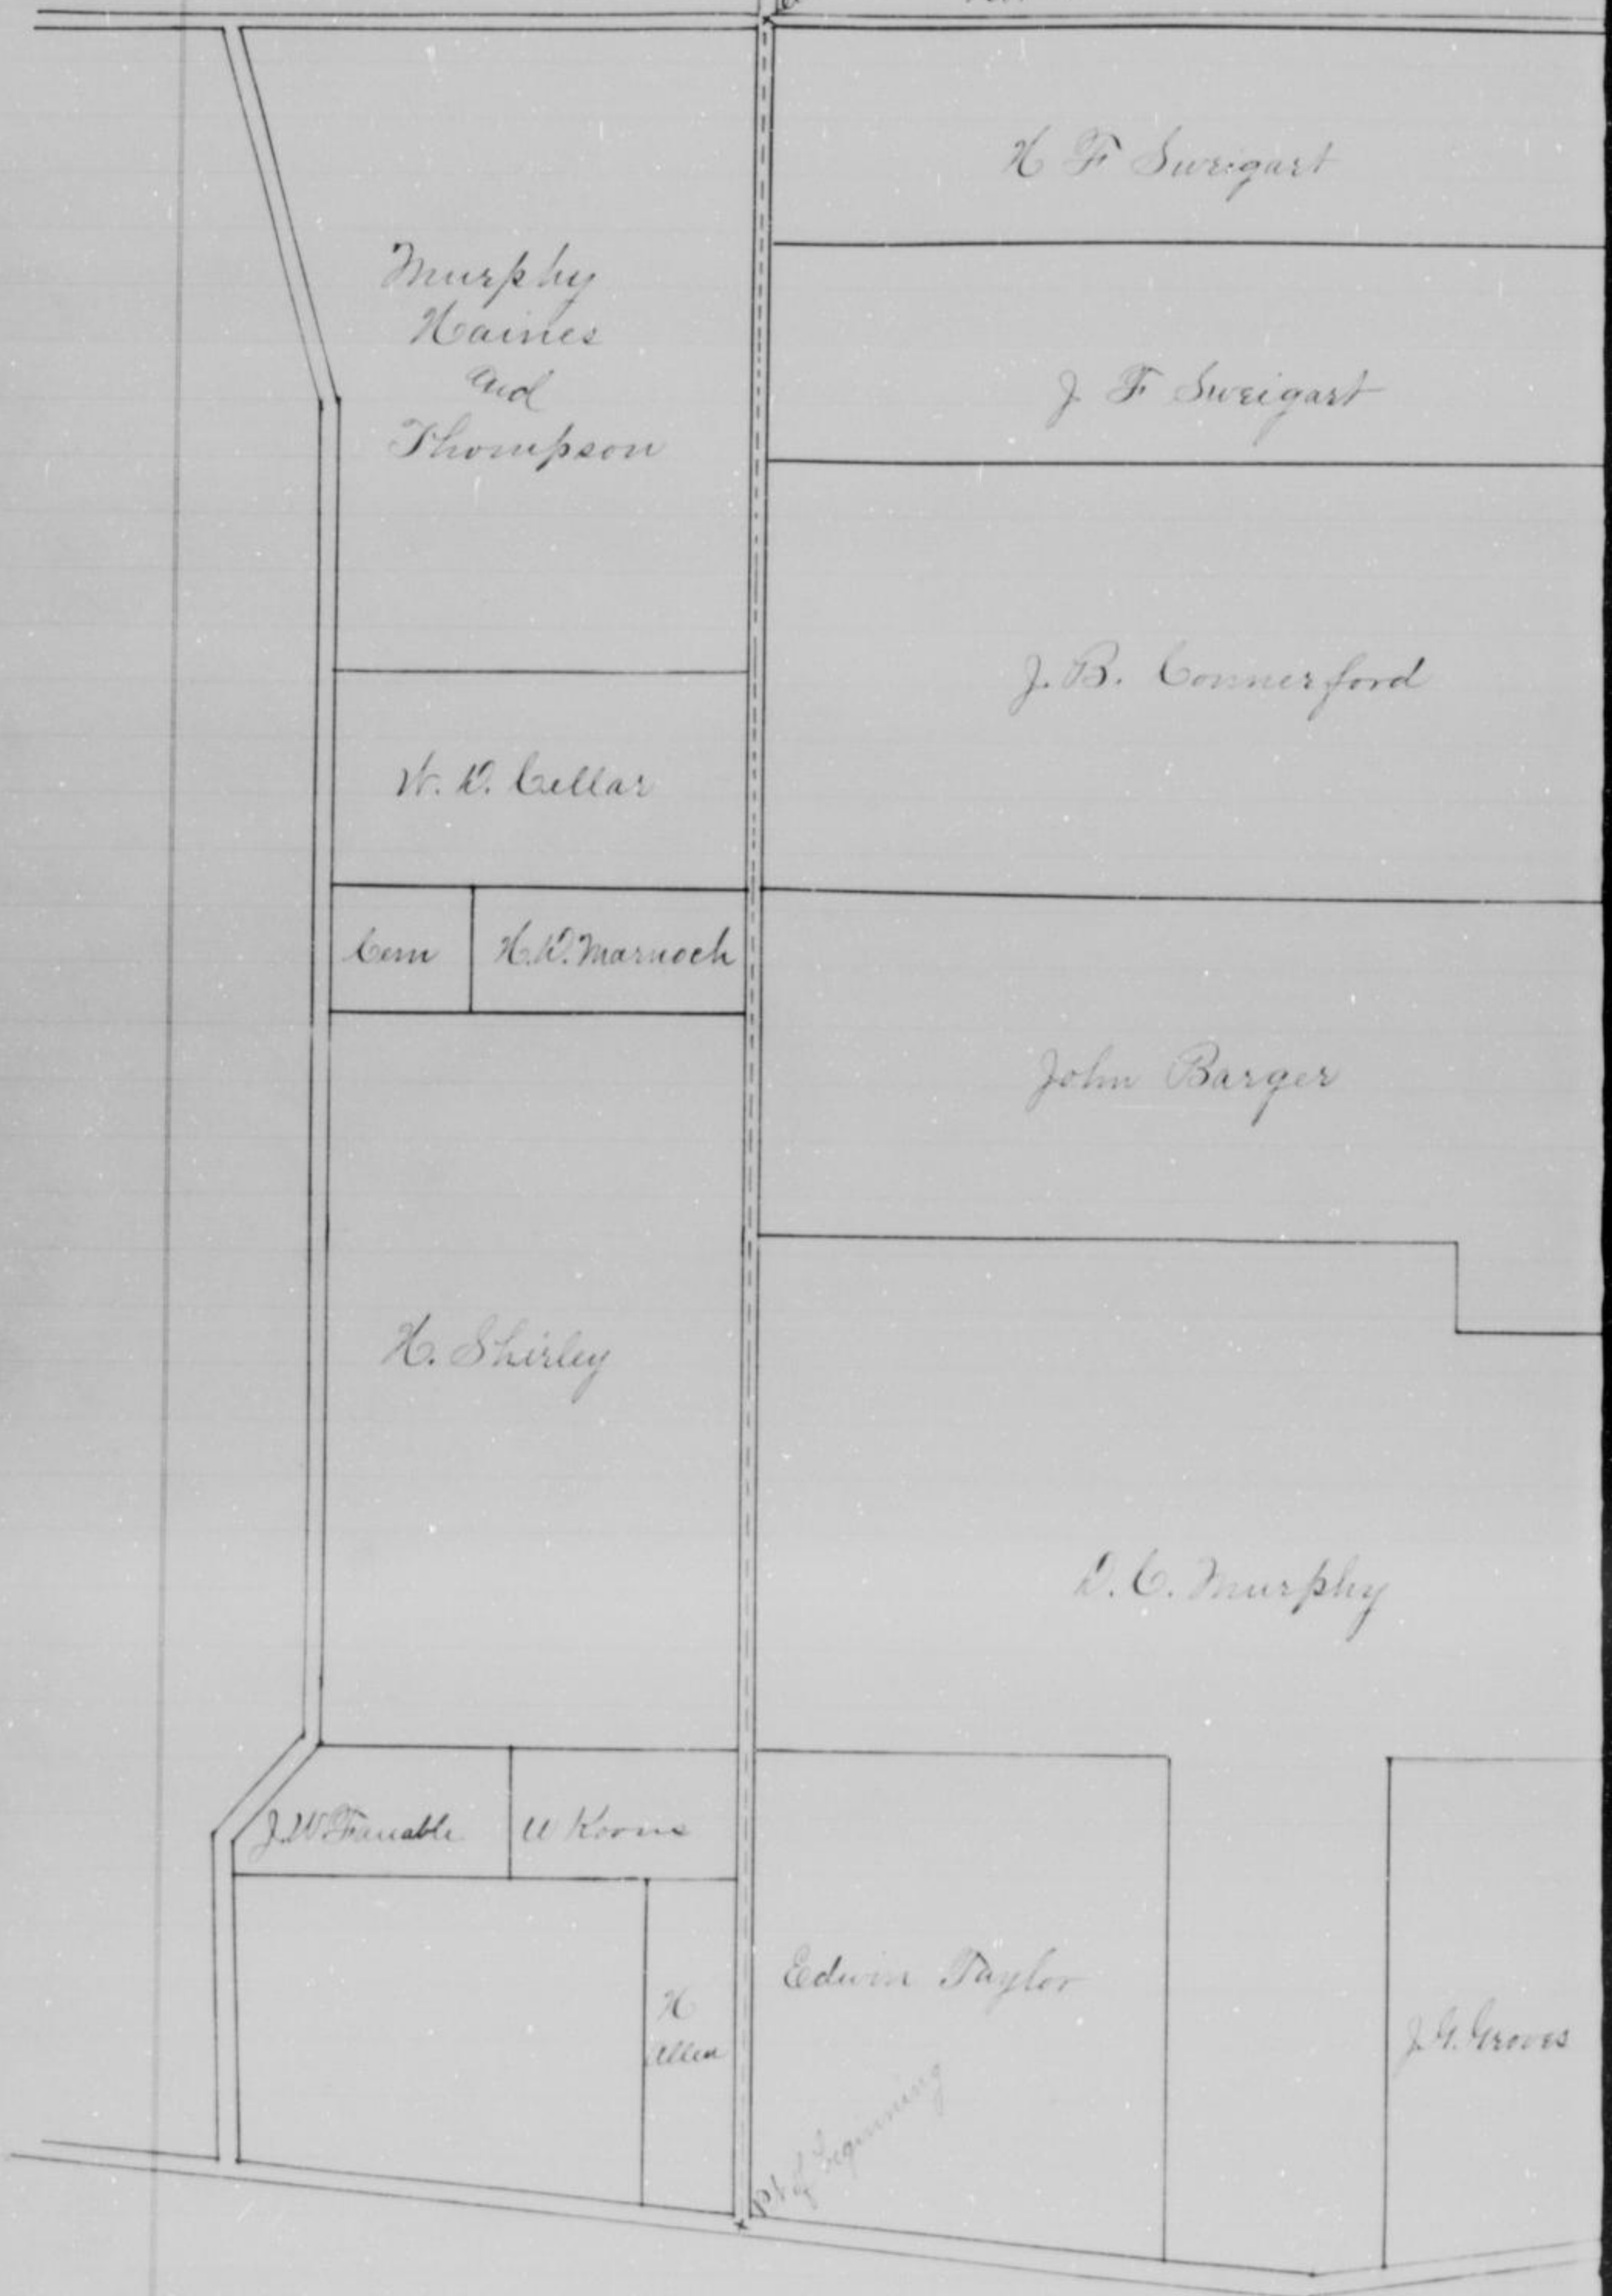 H F Sweigart
Murphy
Haines
and
Thompson
J F Sweigart
J. B. Connerford
W. D. Cellar
Cem
H. D. Marnoch
John Barger
H. Shirley
D. C. Murphy
J. W. Fanable
U Koons
Edwin Taylor
H
Allen
J. G. Groves
Pt of beginning